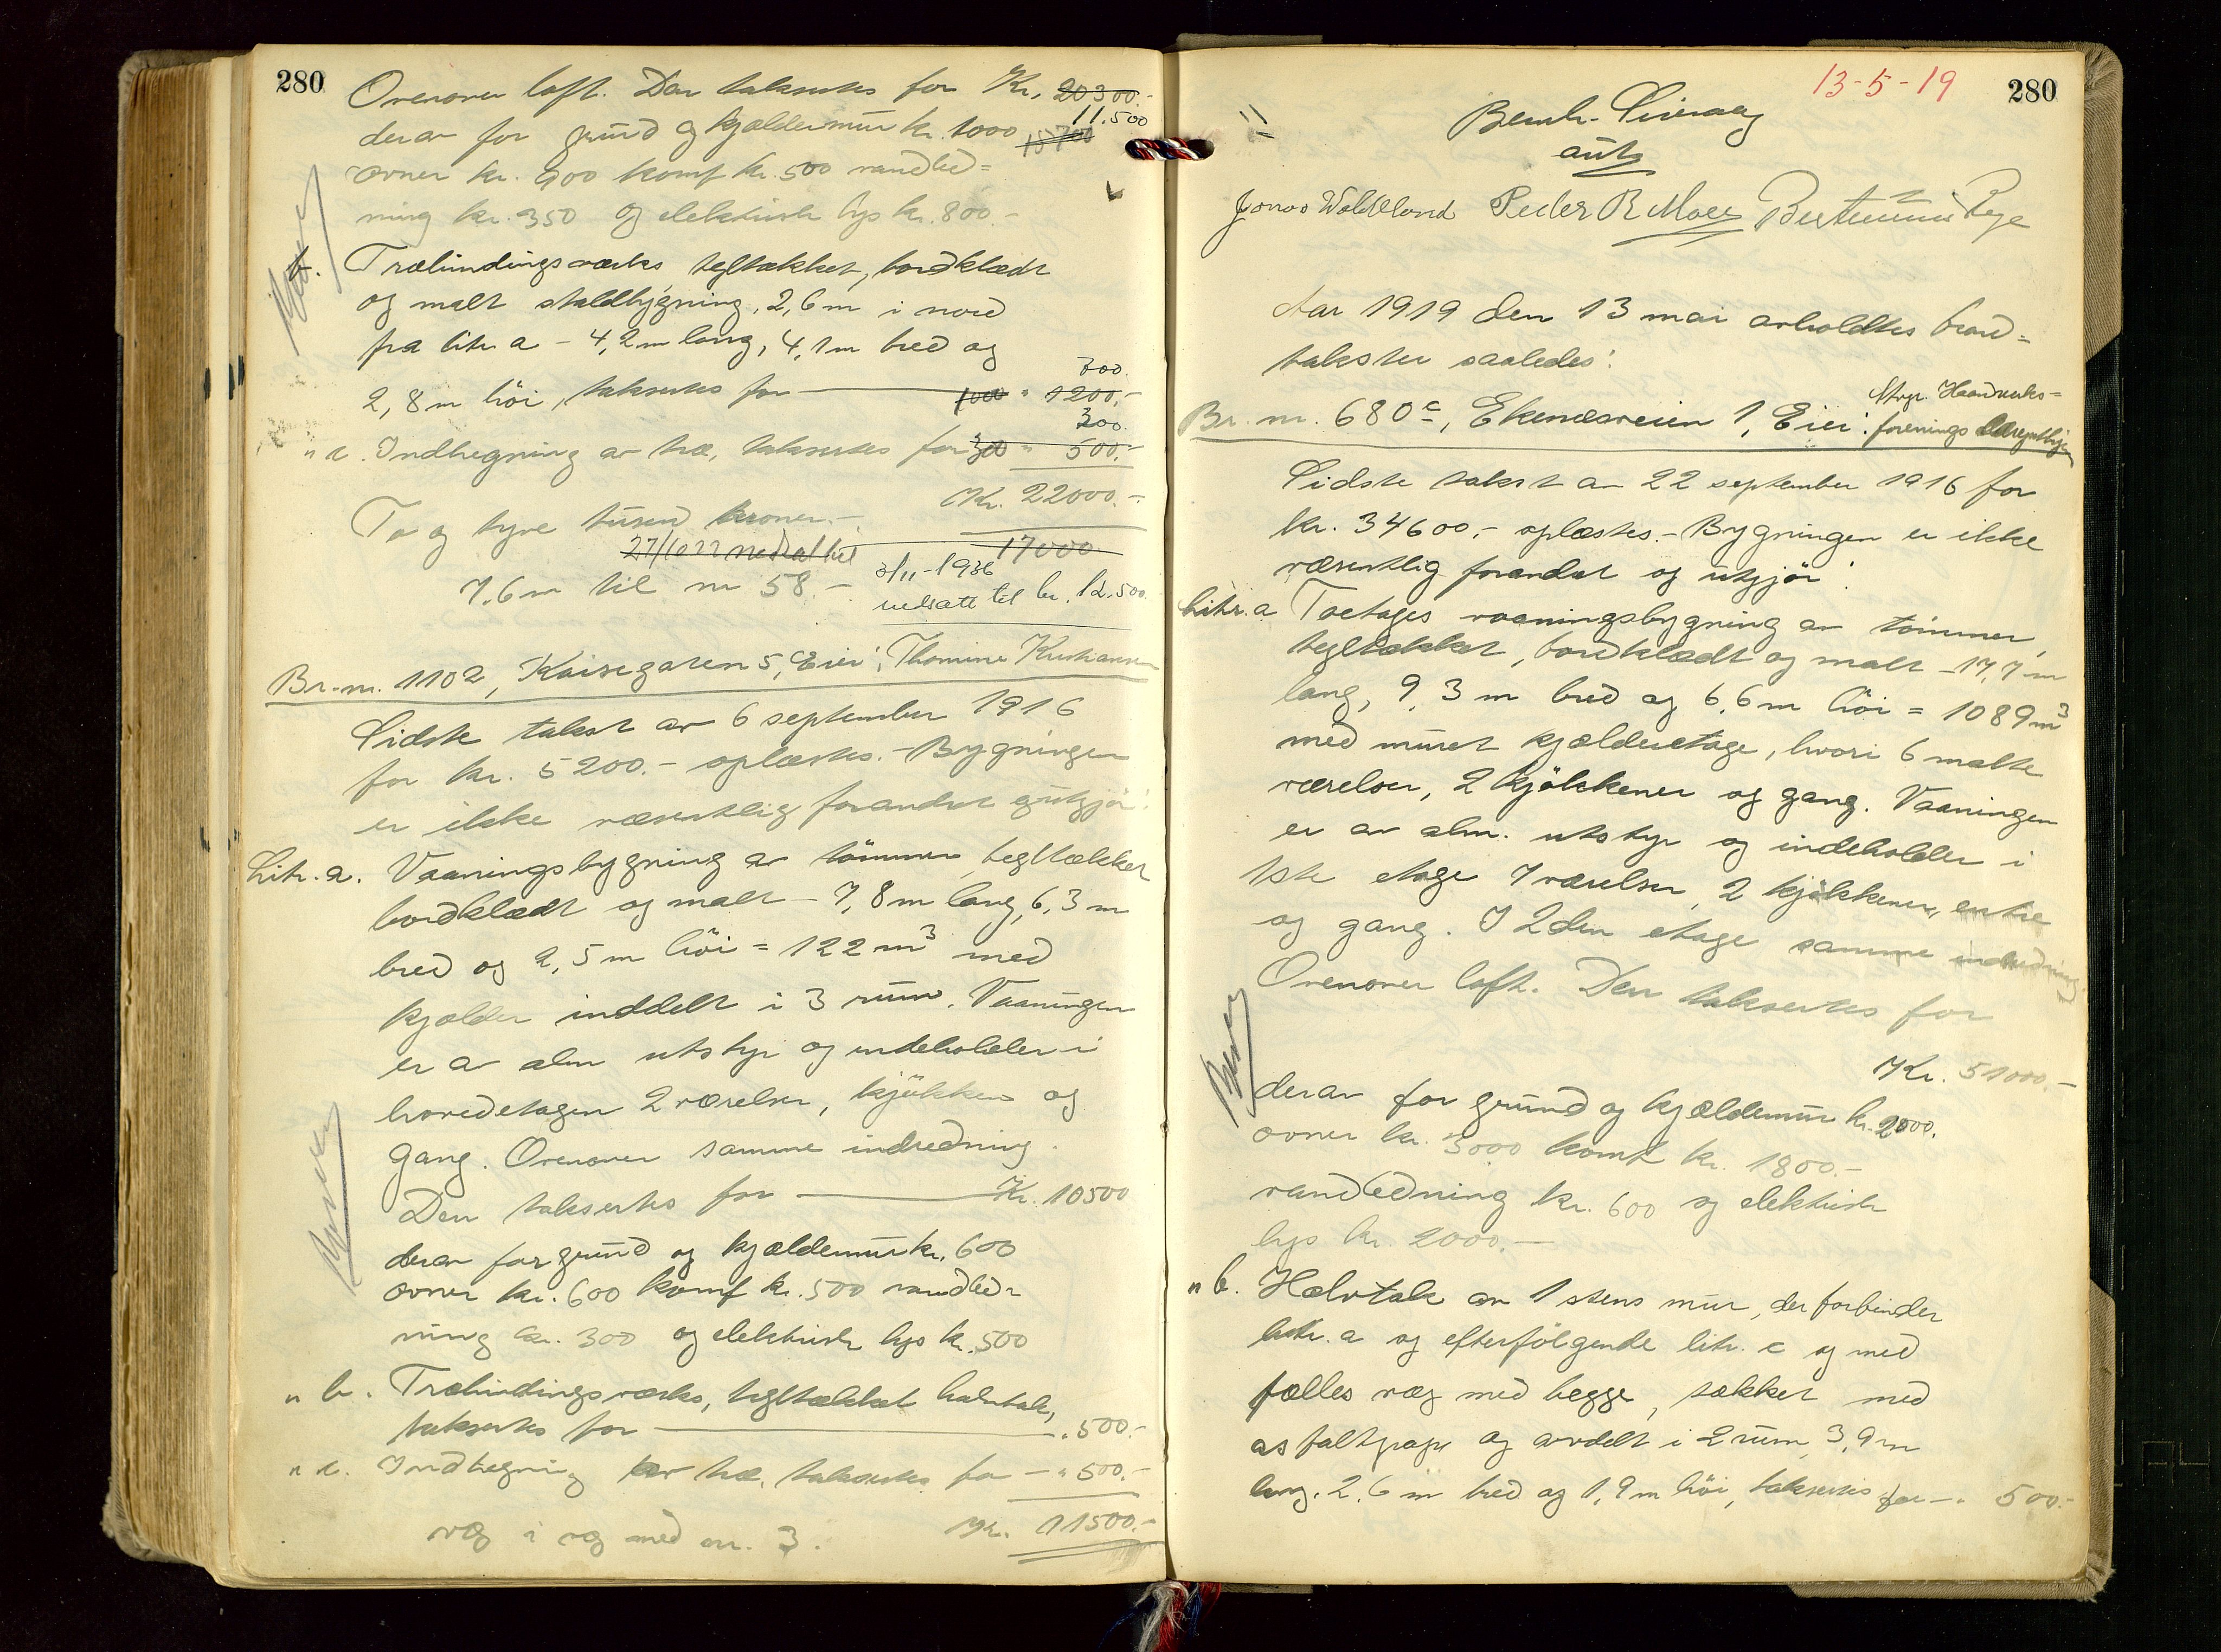 280
Ovenover loft. Den takseres for Kr. 20300.-
11.500
derav for grund og kjældermur kr. 1000 15700
ovner kr. 900 komf kr. 500 vandled=
ning kr. 350 og elektrisk lys kr. 800.-
b. Træbindingsværks tegltækket, bordklædt
og malt staldbygning, 2,6 m i nord
fra litr a - 4,2 m lang, 4,1 m bred og
700.
2,8 m höi, takseres for 1200.-
300.
" c. Indhegning av træ, takseres for 300 " 500.-
Kr. 22000.-
To og tyve tusen kroner.-
27/10 22 nedsat til 17000
7.6 m til nr 58.- 3/11-1936
nedsatt til kr. 12.500.
Br. nr. 1102, Kaisegaten 5, Eier: Thomine Kristiansen
Sidste takst av 6 september 1916
for kr. 5200.- oplæstes.- Bygningen
er ikke væsentlig forandret og utgjör:
Litr. a. Vaaningsbygning av tömmer, tegltækket
bordklædt og malt - 7,8 m lang, 6,3 m
bred og 2,5 m höi = 122 m³ med
kjælder inddelt i 3 rum. Vaaningen
er a alm utstyr og indeholder i
hovedetagen 2 værelser, kjökken og
gang. Ovenover samme indredning.
Den takseres for Kr. 10500
derav for grund og kjældermur kr. 600
ovner kr. 600 komf kr. 500 vandled=
ning kr. 300 og elektrisk lys kr. 500
" b. Træbindingsværks, tegltækket halvtak,
takseres for " 500.-
" c. Indhegning av træ, takseres for - " 500.-
Kr. 11500.-
væg i væg med nr. 3.
13-5-19
280
Bernh.
Jonas Waldeland Peder R Moer
Aar 1919 den 13 mai avholdtes brand=
takster saaledes:
Stvgr. Haandverks=
Br. nr. 680c, Ekenæsveien 1, Eier: forenings
Sidste takst av 22 september 1916 for
kr. 34600.- oplæstes.- Bygningen er ikke
væsentlig forandret og utgjör:
Litr. a Toetages vaaningsbygning av tömmer,
tegltækket, bordklædt og malt - 17,7 m
lang, 9,3 m bred og 6,6 m höi = 1089 m³
med muret kjælderetage, hvori 6 malte
værelser, 2 kjökkener og gang. Vaaningen
er av alm. utstyr og indeholder i
1ste etage 7 værelser, 2 kjökkener, entre
og gang. I 2den etage samme indredning.
Ovenover loft. Den takseres for
Kr. 51000.-
derav for grund og kjældermur kr. 2000.
ovner kr. 3000 komf kr. 1800.-
vandledning kr. 600 og elektrisk
lys kr. 2000.-
" b. Halvtak av 1 stens mur, der forbinder
litr. a og efterfölgende litr. c og med
fælles væg med begge, tækket med
asfaltpap og avdelt i 2 rum, 3,9 m
lang, 2,6 m bred og 1,9 m höi, takseres for - " 500.-